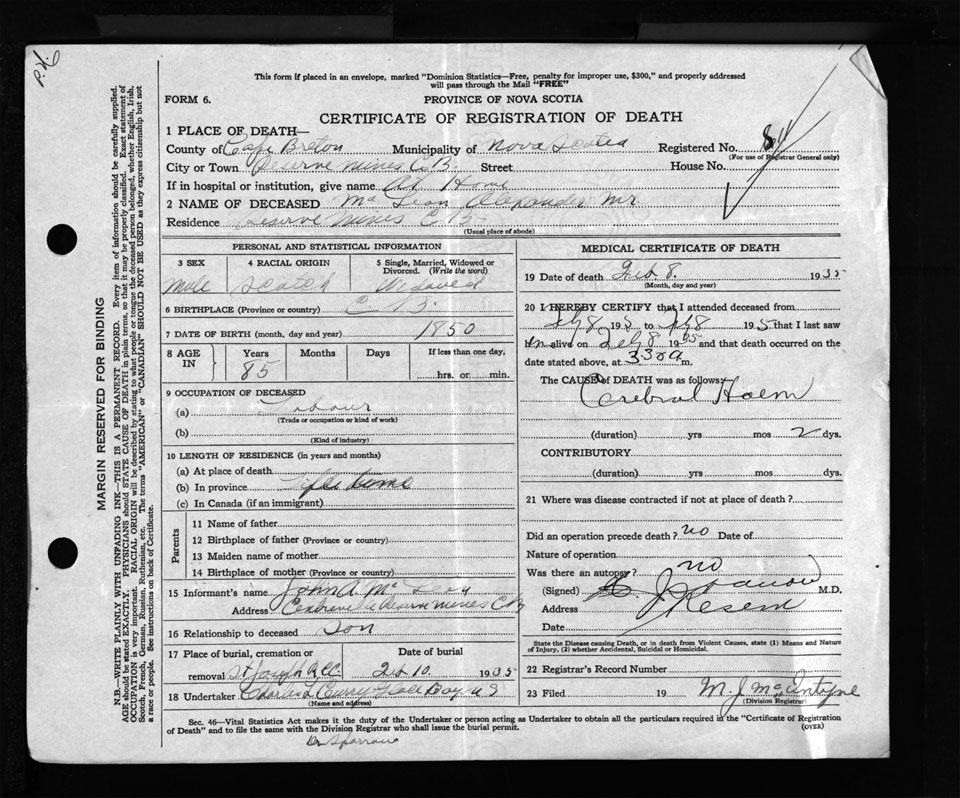 P.N.
This form if placed in an envelope, marked "Dominion Statistics—Free, penalty for improper use, $300," and properly addressed
will pass through the Mail "FREE"
FORM 6.
PROVINCE OF NOVA SCOTIA
CERTIFICATE OF REGISTRATION OF DEATH
1 PLACE OF DEATH—
County of Cape Breton Municipality of Nova Scotia Registered No. 84
(For use of Registrar General only)
City or Town Reserve Mines C.B. Street House No.
If in hospital or institution, give name At Home
2 NAME OF DECEASED Mc Lean Alexander Mr
Residence Reserve Mines C B
(Usual place of abode)
PERSONAL AND STATISTICAL INFORMATION
3 SEX 4 RACIAL ORIGIN 5 Single, Married, Widowed or Divorced. (Write the word)
Male Scotch Widowed
6 BIRTHPLACE (Province or country) C B.
7 DATE OF BIRTH (month, day and year) 1850
8 AGE IN Years Months Days If less than one day,
85 hrs. or min.
9 OCCUPATION OF DECEASED
(a) Labour
(Trade or occupation or kind of work)
(b)
(Kind of industry)
10 LENGTH OF RESIDENCE (in years and months)
(a) At place of death
(b) In province Life time
(c) In Canada (if an immigrant)
Parents
11 Name of father
12 Birthplace of father (Province or country)
13 Maiden name of mother
14 Birthplace of mother (Province or country)
15 Informant's name John A. Mc
Address Reserve Mines C B
16 Relationship to deceased Son
17 Place of burial, cremation or removal Date of burial
St Joseph Feb 10 1935
18 Undertaker Charles Curry Glace Bay N S
(Name and address)
MEDICAL CERTIFICATE OF DEATH
19 Date of death Feb 8. 1935
(Month, day and year)
20 I HEREBY CERTIFY that I attended deceased from
Feb 8 1935 to Feb 8 1935 that I last saw
him alive on Feb 8 1935 and that death occurred on the
date stated above, at 330 a m.
The CAUSE of DEATH was as follows:
Cerebral Haem
(duration) yrs mos 2 dys.
CONTRIBUTORY
(duration) yrs mos dys.
21 Where was disease contracted if not at place of death?
Did an operation precede death? no Date of
Nature of operation
Was there an autopsy? no
(Signed) M.D.
Address Reserve
Date
State the Disease causing Death, or in death from Violent Causes, state (1) Means and Nature
of Injury, (2) whether Accidental, Suicidal or Homicidal.
22 Registrar's Record Number
23 Filed 19 M. J. McIntyre
(Division Registrar)
Sec. 46—Vital Statistics Act makes it the duty of the Undertaker or person acting as Undertaker to obtain all the particulars required in the "Certificate of Registration
of Death" and to file the same with the Division Registrar who shall issue the burial permit.
(OVER)
Dr Sparrow
MARGIN RESERVED FOR BINDING
N.B.—WRITE PLAINLY WITH UNFADING INK—THIS IS A PERMANENT RECORD. Every item of information should be carefully supplied.
AGE should be stated EXACTLY. PHYSICIANS should STATE CAUSE OF DEATH in plain terms, so that it may be properly classified. Exact statement of
OCCUPATION is very important. RACIAL ORIGIN will be described by stating to what people or tongue the deceased person belonged, whether English, Irish,
Scotch, French, German, Russian, Ruthenian, etc. The terms "AMERICAN" or "CANADIAN" SHOULD NOT BE USED as they express citizenship but not
a race or people. See instructions on back of Certificate.